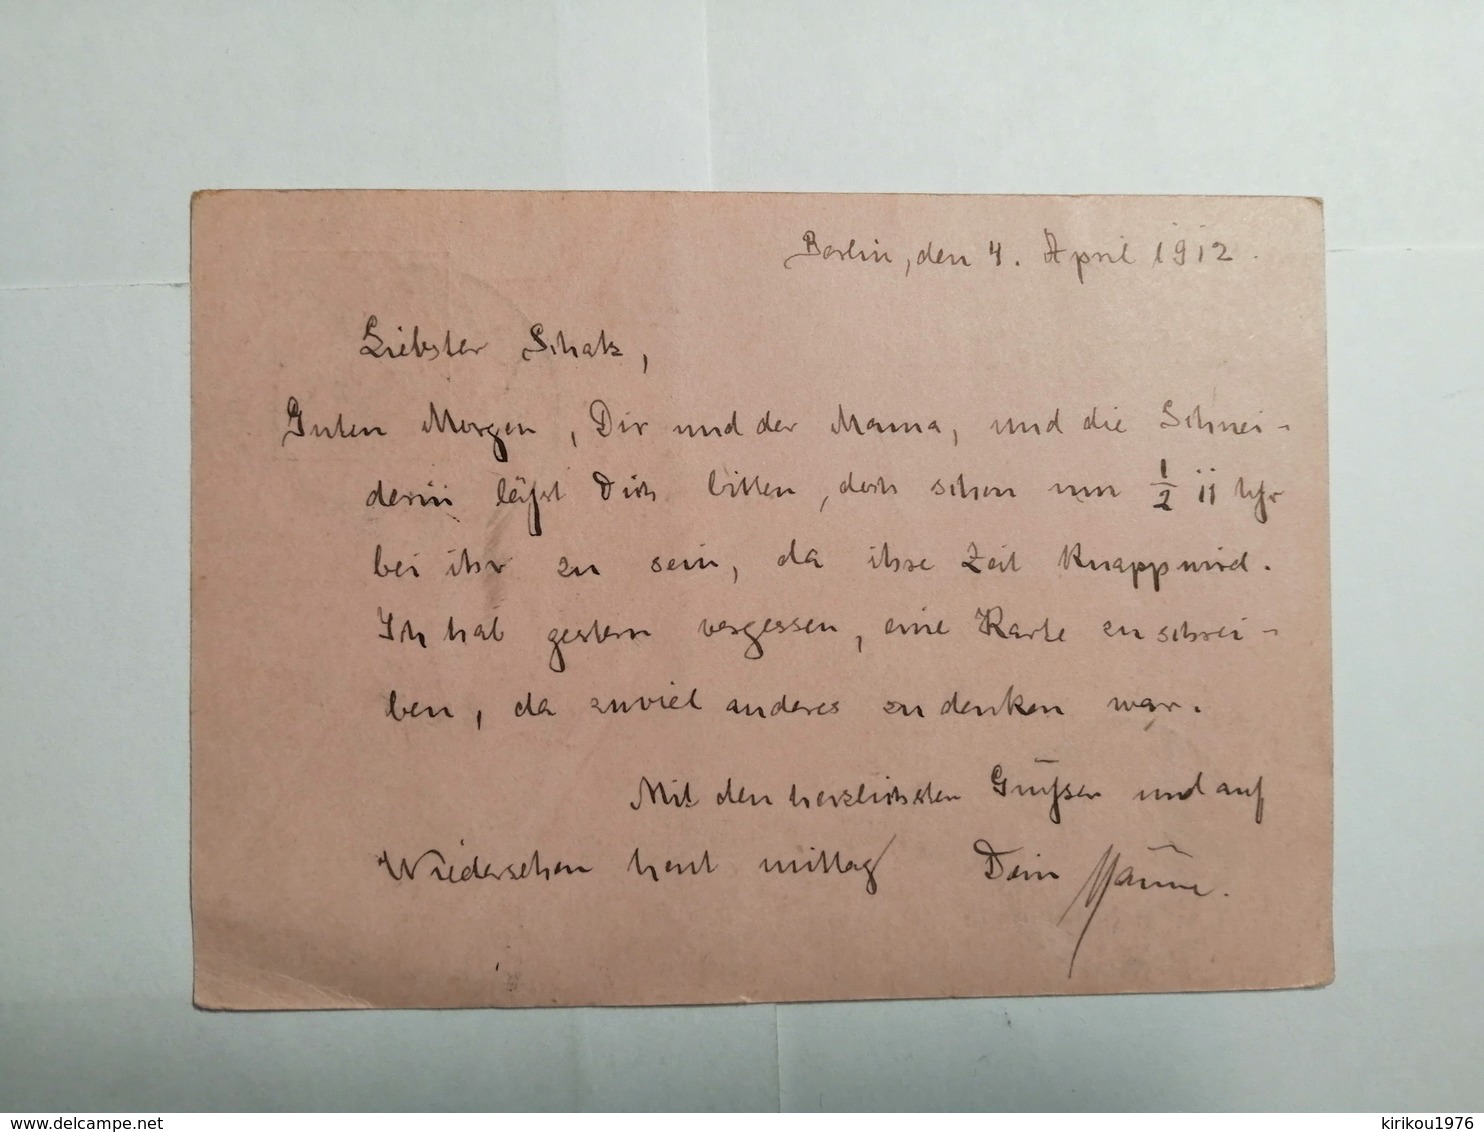 Berlin, den 4. April 1912.
Liebster Schatz,
Guten Morgen, Dir und der Mama, und die Schnei-
derin läßt Dich bitten, doch schon um 1/2 11 Uhr
bei ihr zu sein, da ihre Zeit knapp wird.
Ich hab gestern vergessen, eine Karte zu schrei-
ben, da zuviel anderes zu denken war.
Mit den herzlichsten Grüßen und auf
Wiedersehen heut mittag Dein
delcampe.net
kirikou1976